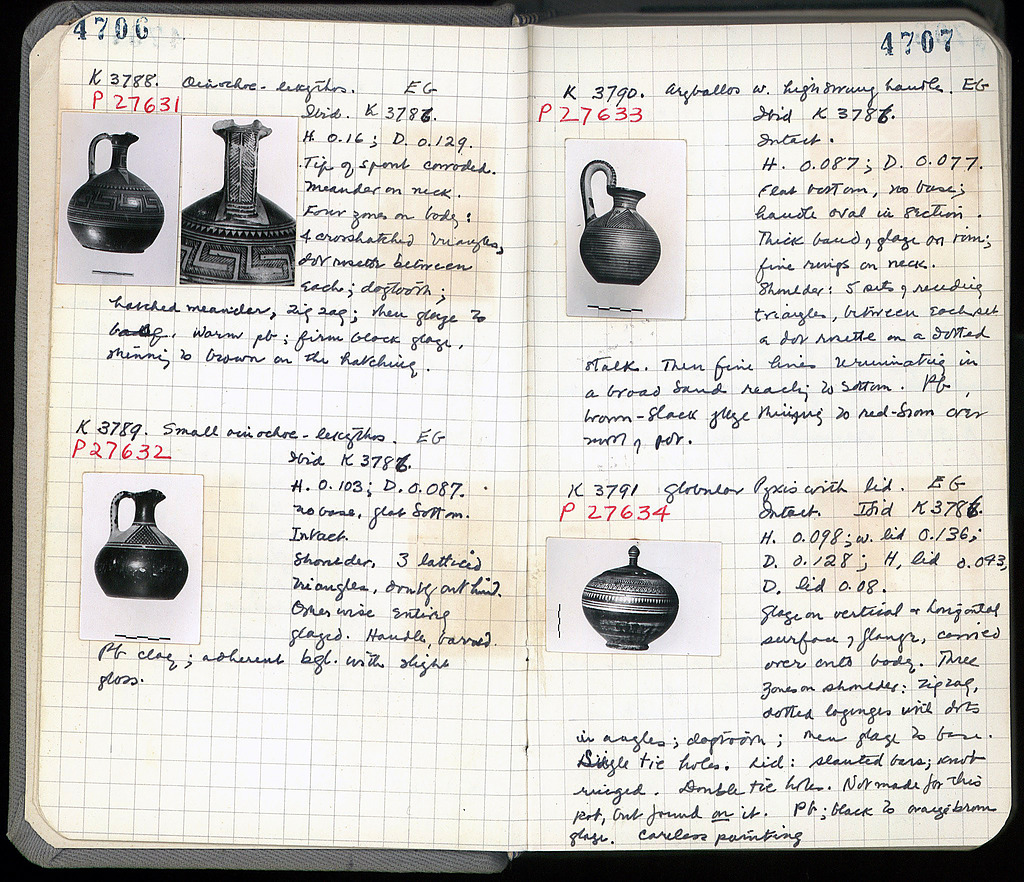 4706
K 3788. Oinochoe-lekythos. EG
P 27631
Ibid. K 3786.
H. 0.16; D. 0.129.
Tip of spout corroded.
Meander on neck.
Four zones on body:
4 crosshatched triangles,
dot rosette between
each; dogtooth;
hatched meander, zigzag; then glaze to
warm pb; firm black glaze,
thinning to brown on the hatching.
K 3789. Small oinochoe-lekythos. EG
P 27632
Ibid K 3786.
H. 0.103; D. 0.087.
No base, flat bottom.
Intact.
Shoulder, 3 latticed
triangles, doubly outlined.
Otherwise entirely
glazed. Handle, barred.
Pb clay; adherent bgl. with slight
gloss.
4707
K 3790. Aryballos w. high swung handle. EG
P 27633
Ibid K 3786.
Intact.
H. 0.087; D. 0.077.
Flat bottom, no base;
handle oval in section.
Thick band of glaze on rim;
fine rings on neck.
Shoulder: 5 sets of receding
triangles, between each set
a dot rosette on a dotted
stalk. Then fine lines terminating in
a broad band reaching to bottom. Pb
brown-black glaze thinning to red-brown over
most of pot.
K 3791 Globular Pyxis with lid. EG
P 27634
Intact. Ibid K 3786.
H. 0.098; w. lid 0.136;
D. 0.128; H. lid 0.043,
D. lid 0.08.
Glaze on vertical & horizontal
surface of flange, carried
over onto body. Three
zones on shoulder: zigzag,
dotted lozenges with dots
in angles; dogtooth; then glaze to base.
Single tie holes. Lid: slanted bars; knob
ringed. Double tie holes. Not made for this
pot, but found on it. Pb; black to orange brown
glaze. Careless painting